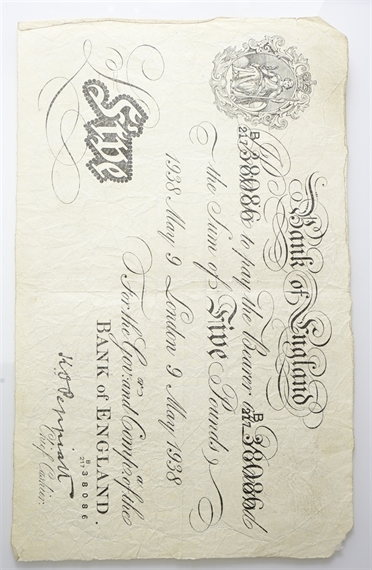 Bank of England
B/217 38086 to pay the Bearer B/217 38086
the Sum of Five Pounds
1938 May 9 London 9 May 1938
For the Govr. and Compa. of the
BANK of ENGLAND.
Five
B/217 38086
K O Peppiatt
Chief Cashier.